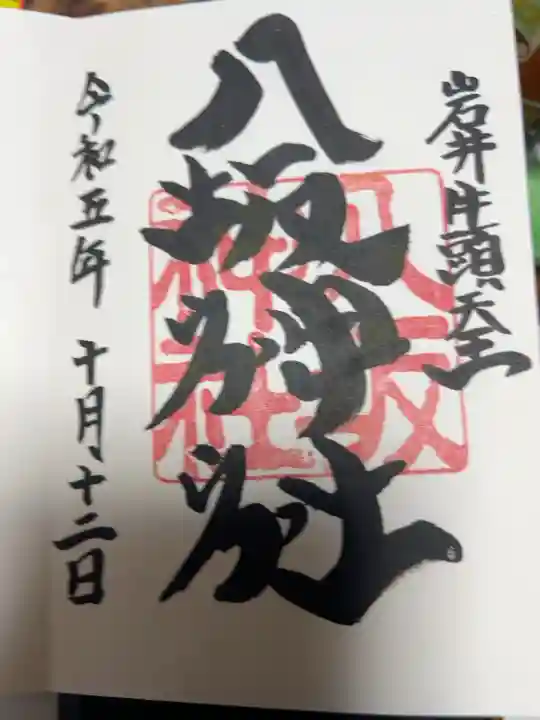 岩井牛頭天王
八坂神社
八坂
神社
令和五年 十月十二日